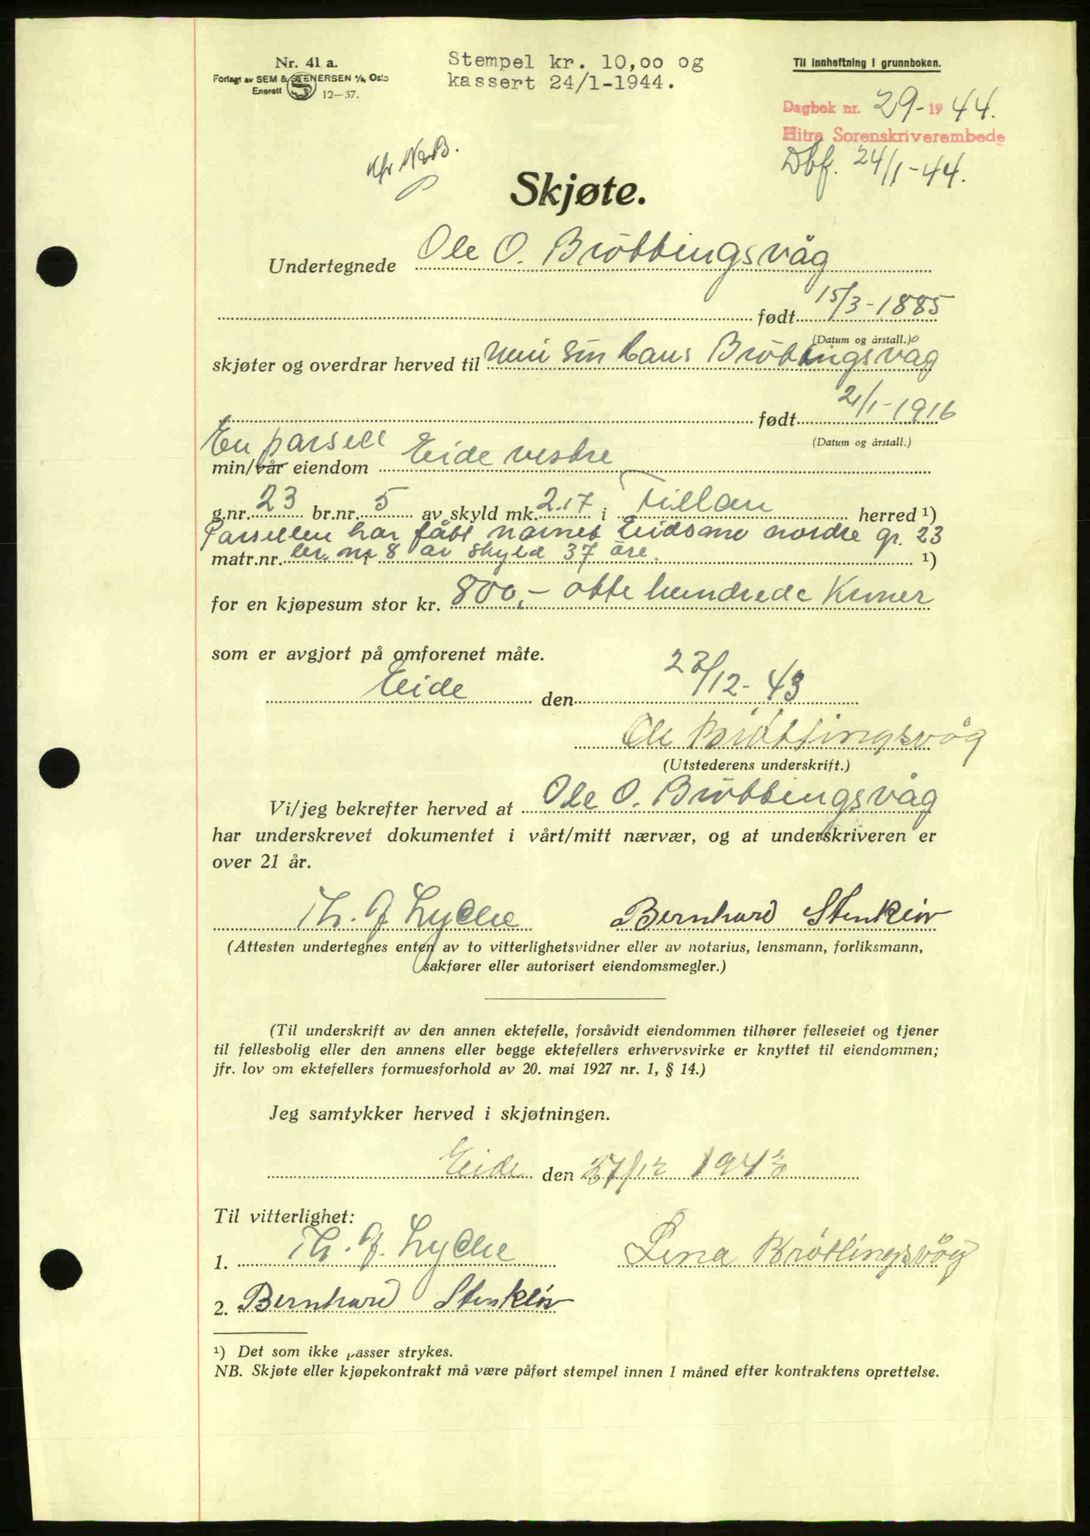 Nr. 41 a.
Forlagt av SEM & STENERSEN A/S, Oslo
Enerett 12—37.
Stempel kr. 10,00 og
kassert 24/1-1944.
Til innheftning i grunnboken.
Dagbok nr. 29 - 1944.
Hitra Sorenskriverembede
Dbf. 24/1-44.
Skjøte.
Undertegnede Ole O. Bröttingsvåg
født 15/3-1885
(Datum og årstall.)
skjøter og overdrar herved til min sön Hans Bröttingsvåg
født 21/1-1916
(Datum og årstall.)
En parsell
min/vår eiendom Eide vestre
g.nr. 23 br.nr. 5 av skyld mk. 2.17 i Fillan herred ¹)
Parsellen har fått navnet Eidsmo nordre gr. 23
matr.nr. br. nr 8 av skyld 37 öre. ¹)
for en kjøpesum stor kr. 800,- otte hundrede Kroner
som er avgjort på omforenet måte.
Eide den 27/12-43
Ole Bröttingsvåg
(Utstederens underskrift.)
Vi/jeg bekrefter herved at Ole O. Bröttingsvåg
har underskrevet dokumentet i vårt/mitt nærvær, og at underskriveren er
over 21 år.
Th. J. Lycke Bernhard Stenklöv
(Attesten undertegnes enten av to vitterlighetsvidner eller av notarius, lensmann, forliksmann,
sakfører eller autorisert eiendomsmegler.)
(Til underskrift av den annen ektefelle, forsåvidt eiendommen tilhører felleseiet og tjener
til fellesbolig eller den annens eller begge ektefellers erhvervsvirke er knyttet til eiendommen;
jfr. lov om ektefellers formuesforhold av 20. mai 1927 nr. 1, § 14.)
Jeg samtykker herved i skjøtningen.
Eide den 27/12 1943
Til vitterlighet:
1. Th. J. Lycke Lina Bröttingsvåg
2. Bernhard Stenklöv
¹) Det som ikke passer strykes.
NB. Skjøte eller kjøpekontrakt må være påført stempel innen 1 måned efter kontraktens oprettelse.